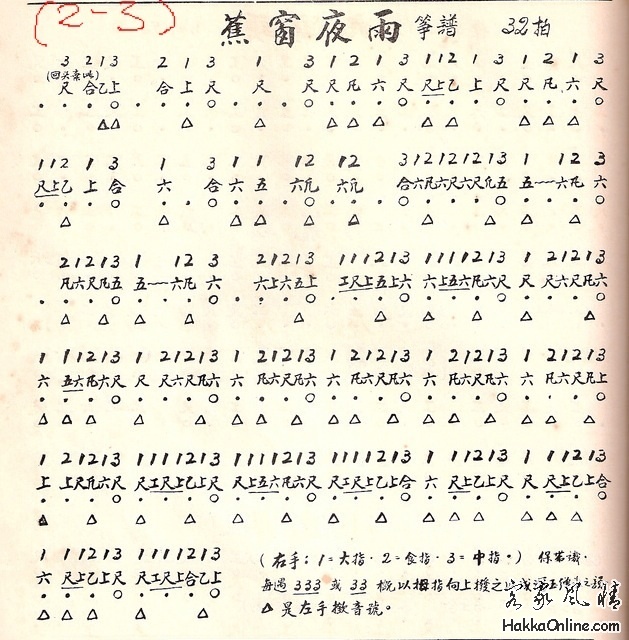 (2-3)
蕉窗夜雨 筝譜 32拍
3 2 1 3 2 1 3 1 3 1 2 1 3 1 1 2 1 3 1 2 1 3
尺 合乙上 合 上 尺 尺 尺 尺 凡 六 尺 尺上乙 上 尺 尺 凡 六 尺
1 1 2 1 3 1 3 1 1 1 2 1 2 3 1 2 1 2 1 2 1 3 1 1 2 3
尺上乙 上 合 六 合 六 五 六凡 六凡 合六凡六尺六尺凡五 五——六凡 六
2 1 2 1 3 1 1 2 3 2 1 2 1 3 1 1 1 2 1 3 1 1 1 2 1 3 1 2 1 2 1 3
凡六尺凡五 五——六凡 六 六上六五上 工尺上五上六 六上五六凡六尺 尺 尺六尺凡六
1 1 1 2 1 3 1 2 1 2 1 3 1 2 1 2 1 3 1 2 1 2 1 3 1 2 1 2 1 3 1 2 1 2 1 3
六 五六凡六尺 尺 尺六尺凡六 六 凡六尺凡六 六 凡六尺凡六 六 凡六尺凡六 六 凡六尺凡上
1 2 1 2 1 3 1 1 1 1 2 1 3 1 1 1 1 2 1 3 1 1 1 1 2 1 3 1 1 1 2 1 3 1 1 1 2 1 3
上 上尺凡六尺 尺工尺上乙上尺 尺上五六凡六尺 尺工尺上乙上合 六 尺上乙上尺 尺 尺上乙上合
1 1 1 2 1 3 1 1 1 1 2 1 3
六 尺上乙上尺 尺工尺上合乙上
(右手:1=大指·2=食指·3=中指·)
每遇 333 或 33 概以拇指向上撥之
△是左手撳音號。
客家風情
HakkaOnline.com